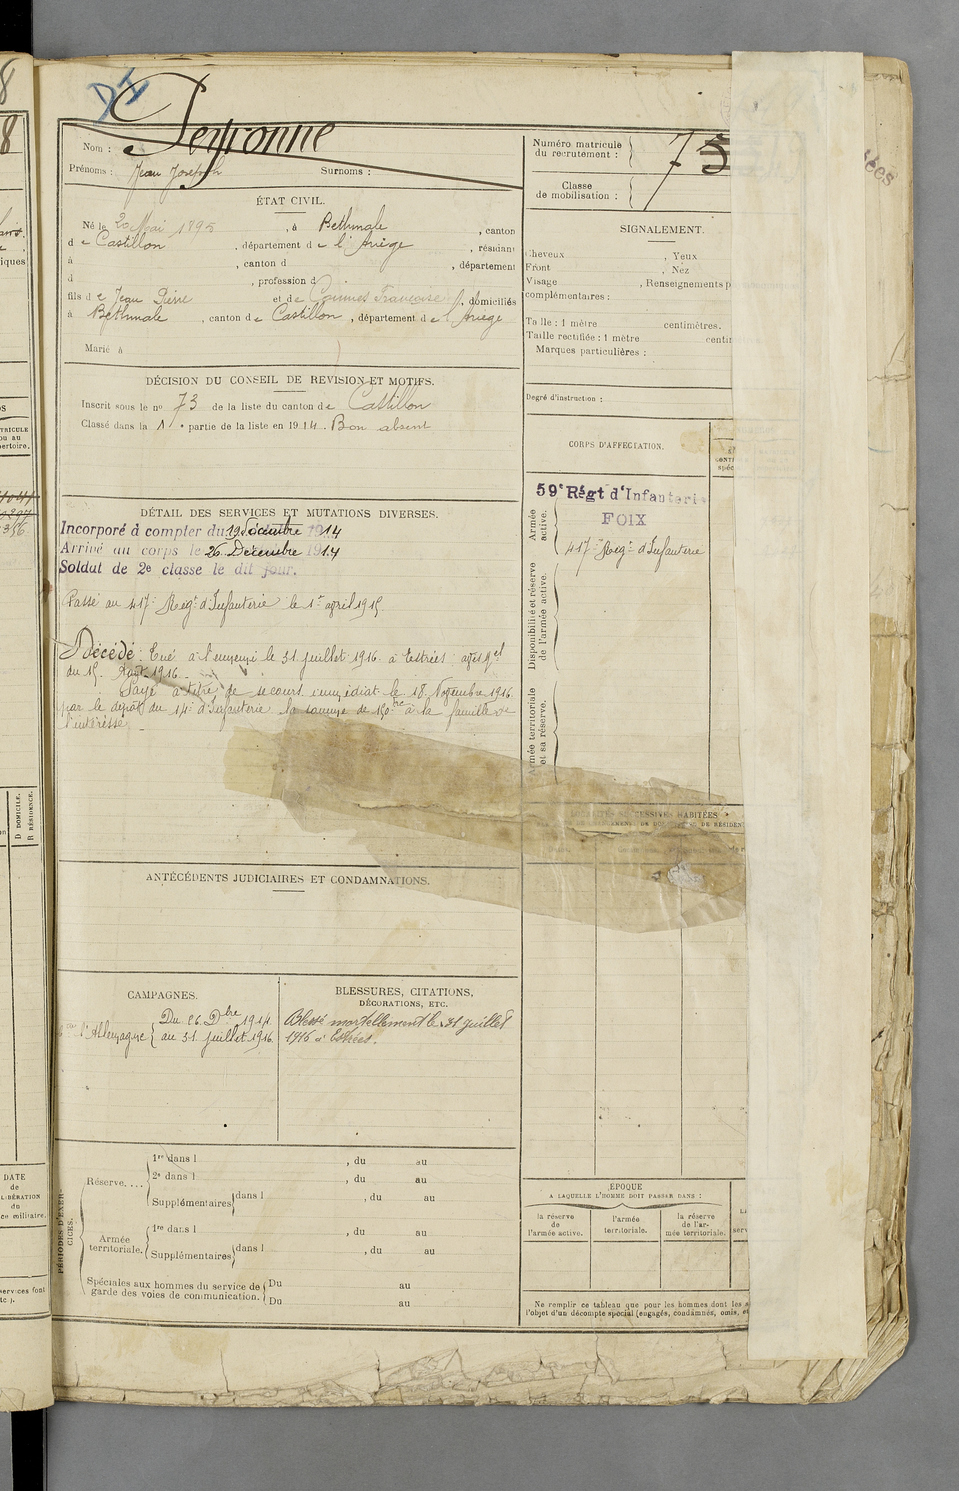 DI
Nom : Peyronne
Prénoms : Jean Joseph Surnoms :
ÉTAT CIVIL.
Né le 20 Mai 1895, à Bethmale, canton
de Castillon, département de l'Ariège, résidant
à , canton d , département
d , profession d
fils de Jean Pierre et de Coumes Françoise, domiciliés
à Bethmale, canton de Castillon, département de l'Ariège
Marié à
DÉCISION DU CONSEIL DE REVISION ET MOTIFS.
Inscrit sous le no 73 de la liste du canton de Castillon
Classé dans la 1re partie de la liste en 1914. Bon absent
DÉTAIL DES SERVICES ET MUTATIONS DIVERSES.
Incorporé à compter du 19 Décembre 1914
Arrivé au corps le 26 Décembre 1914
Soldat de 2e classe le dit jour.
Passé au 417e Régt d'Infanterie le 1er april 1915
Décédé : Tué à l'ennemi le 31 juillet 1916 à Estrées
du 15 Août 1916
Payé à titre de secours immédiat le 18 Novembre 1916
par le dépôt du 14e d'Infanterie la somme de 150 frs à la famille de
l'intéressé
ANTÉCÉDENTS JUDICIAIRES ET CONDAMNATIONS.
CAMPAGNES.
l'Allemagne { Du 26 Dbre 1914
au 31 juillet 1916
BLESSURES, CITATIONS,
DÉCORATIONS, ETC.
Blessé mortellement le 31 juillet
1916 à Estrées.
PÉRIODES D'EXERCICES.
Réserve....
1re dans l , du au
2e dans l , du au
Supplémentaires dans l , du au
Armée territoriale.
1re dans l , du au
Supplémentaires dans l , du au
Spéciales aux hommes du service de
garde des voies de communication.
Du au
Du au
Numéro matricule
du recrutement :
Classe
de mobilisation :
SIGNALEMENT.
Cheveux , Yeux
Front , Nez
Visage , Renseignements p
complémentaires :
Taille : 1 mètre centimètres.
Taille rectifiée : 1 mètre centi
Marques particulières :
Degré d'instruction :
CORPS D'AFFECTATION.
Armée
active.
59e Régt d'Infanterie
FOIX
417e Régt d'Infanterie
Disponibilité et réserve
de l'armée active.
Armée territoriale
et sa réserve.
LOCALITÉS SUCCESSIVES HABITÉES
ÉPOQUE
A LAQUELLE L'HOMME DOIT PASSER DANS :
la réserve
de
l'armée active.
l'armée
territoriale.
la réserve
de l'ar-
mée territoriale.
Ne remplir ce tableau que pour les hommes dont les
l'objet d'un décompte spécial (engagés, condamnés, omis, et
D DOMICILE.
R RÉSIDENCE.
DATE
de
LIBÉRATION
du